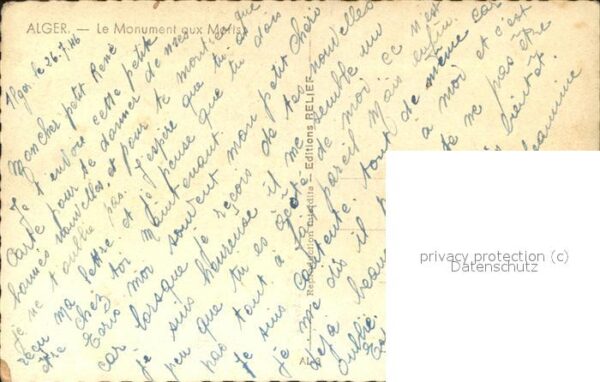 ALGER. — Le Monument aux Morts
Alger le 26.7.46
Mon cher petit René
Je t'envoie cette petite
carte pour te donner de nos
bonnes nouvelles, et pour te montrer que
je ne t'oublie pas. J'espère que tu as
reçu ma lettre et je pense que tu dois
être chez toi maintenant.
Ecris moi souvent mon petit chéri
car lorsque je reçois de tes nouvelles
je suis heureuse il me semble un
peu que tu es à côté de moi ce n'est
pas tout à fait pareil mais enfin.
Je suis contente tout de même car
je me dis il à moi et c'est
déjà beau de ne pas être
oublié. bientôt.
Jeannine
Reproduction interdite — Editions RELIEF
privacy protection (c)
Datenschutz